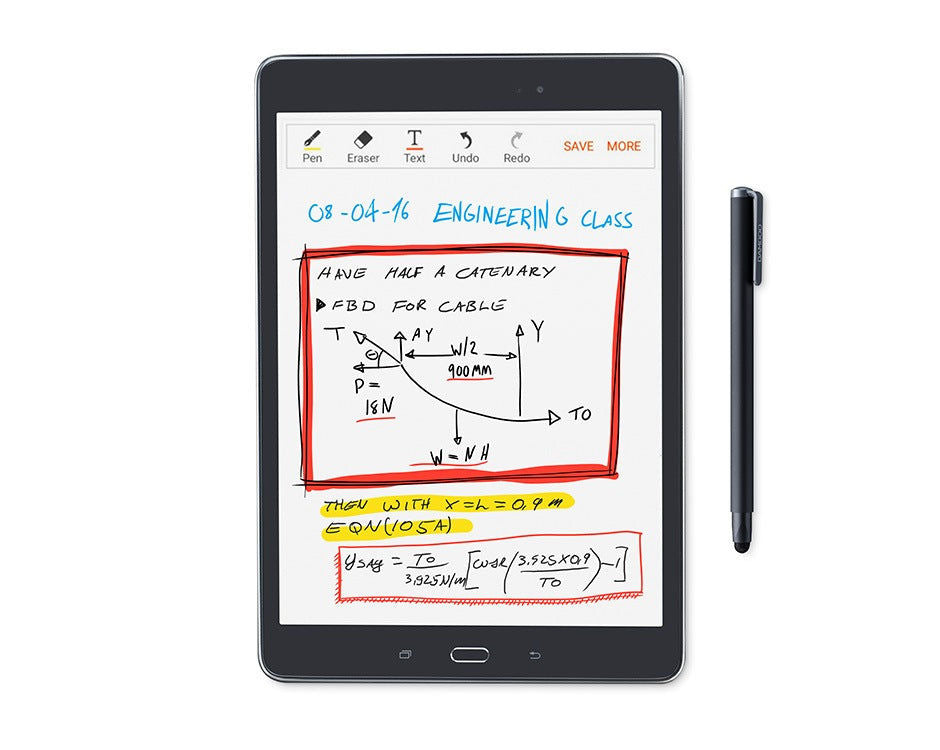 Pen Eraser Text Undo Redo SAVE MORE
08-04-16 ENGINEERING CLASS
HAVE HALF A CATENARY
▶ FBD FOR CABLE
T AY Y
W/2
Θ
900MM
P =
18N
TO
W = NH
THEN WITH X=L=0,9 m
EQN(105A)
ySAg = TO / 3,925N/m [ (3.925X0,9 / TO) -1 ]
BAMBOO